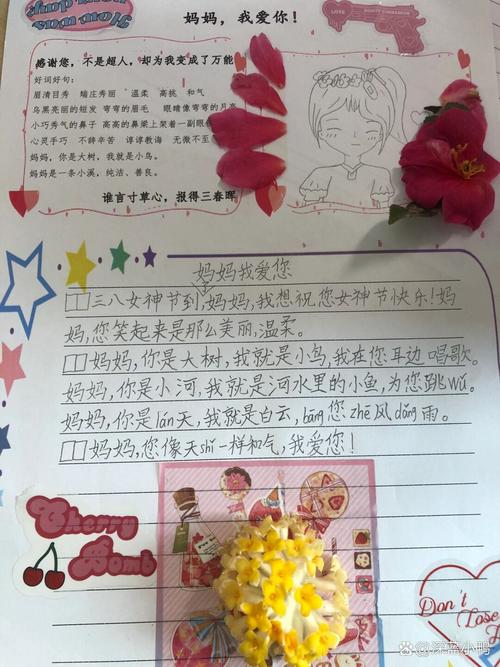 How was your day?
妈妈，我爱你！
LOVE
感谢您，不是超人，却为我变成了万能
好词好句：
眉清目秀 端庄秀丽 温柔 高挑 和气
乌黑亮丽的短发 弯弯的眉毛 眼睛像弯弯的月亮
小巧秀气的鼻子 高高的鼻梁上架着一副眼
心灵手巧 不辞辛苦 谆谆教诲 无微不至
妈妈，你是大树，我就是小鸟。
妈妈是一条小溪，纯洁、善良。
谁言寸草心，报得三春晖
妈妈我爱您
三八女神节到，妈妈，我想祝您女神节快乐！妈
妈，您笑起来是那么美丽，温柔。
妈妈，你是大树，我就是小鸟，我在您耳边唱歌。
妈妈，你是小河，我就是河水里的小鱼，为您跳wǔ。
妈妈，你是lán天，我就是白云，bāng您zhē风dǎng雨。
妈妈，您像天shǐ一样和气，我爱您！
Cherry
Bomb
Don't
Lose